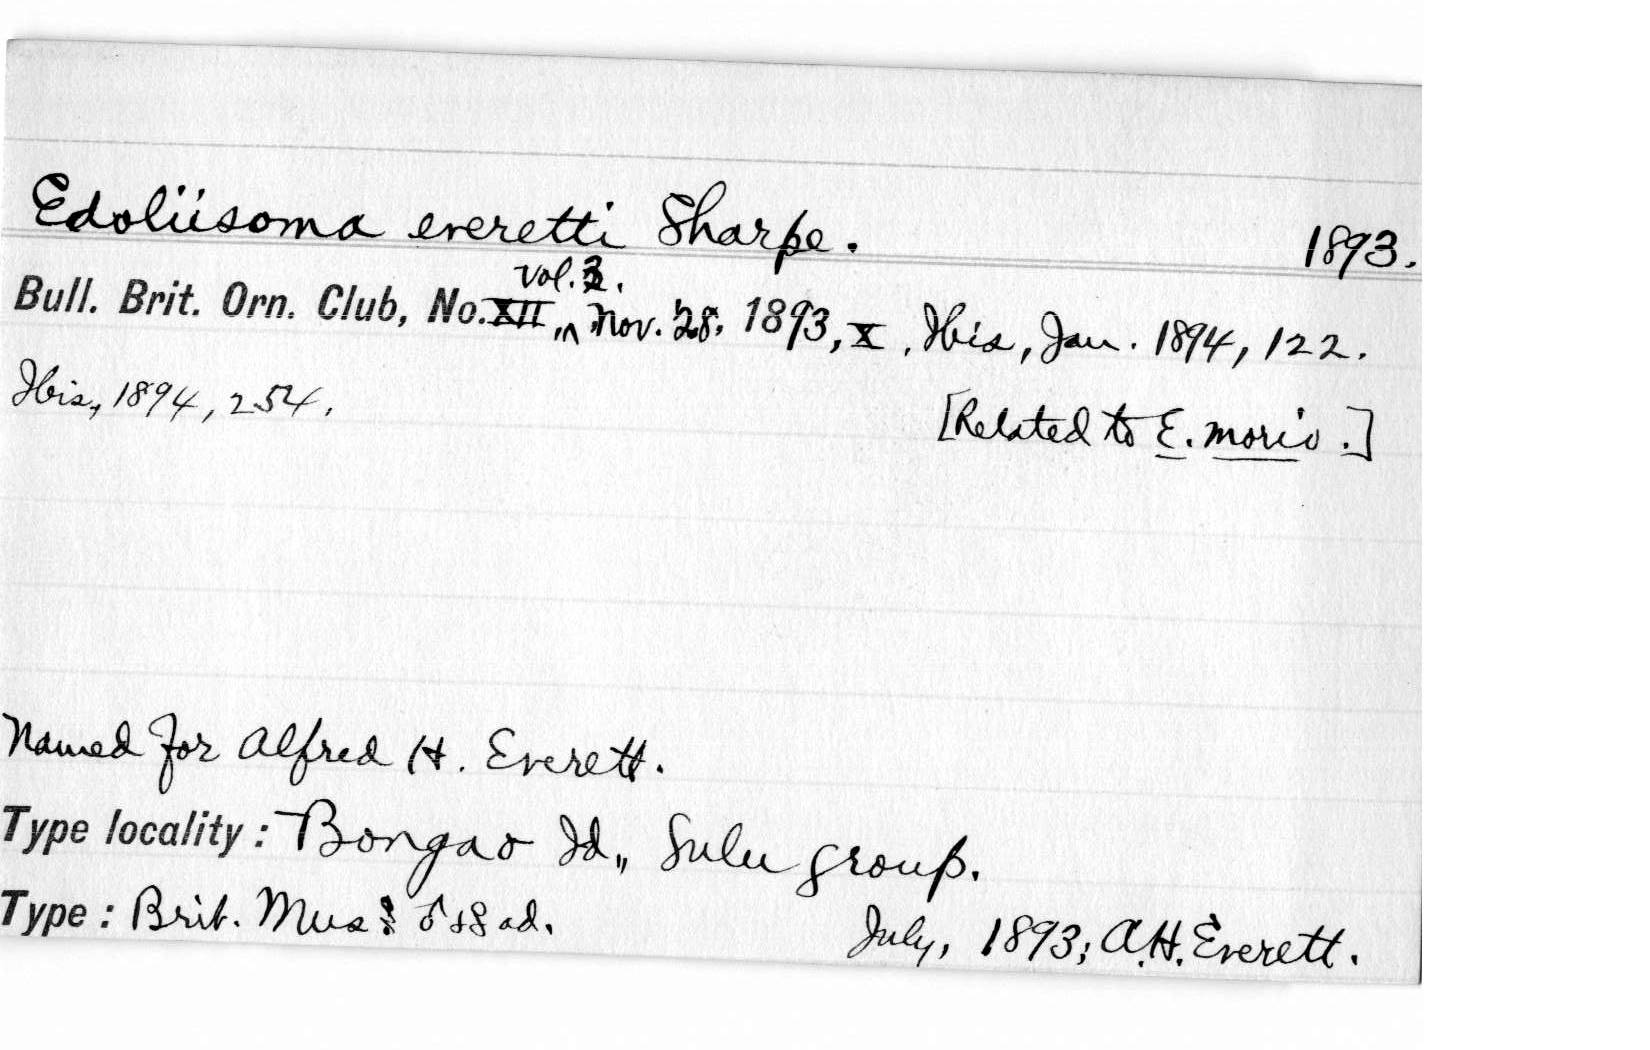 Edoliisoma everetti Sharpe. 1893.
vol. 3.
Bull. Brit. Orn. Club, No. XII, Nov. 28, 1893, X, Ibis, Jan. 1894, 122.
Ibis, 1894, 254.
[Related to E. morio.]
Named for Alfred H. Everett.
Type locality: Bongao Id., Sulu group.
Type: Brit. Mus: ♂ ad. July, 1893; A.H. Everett.